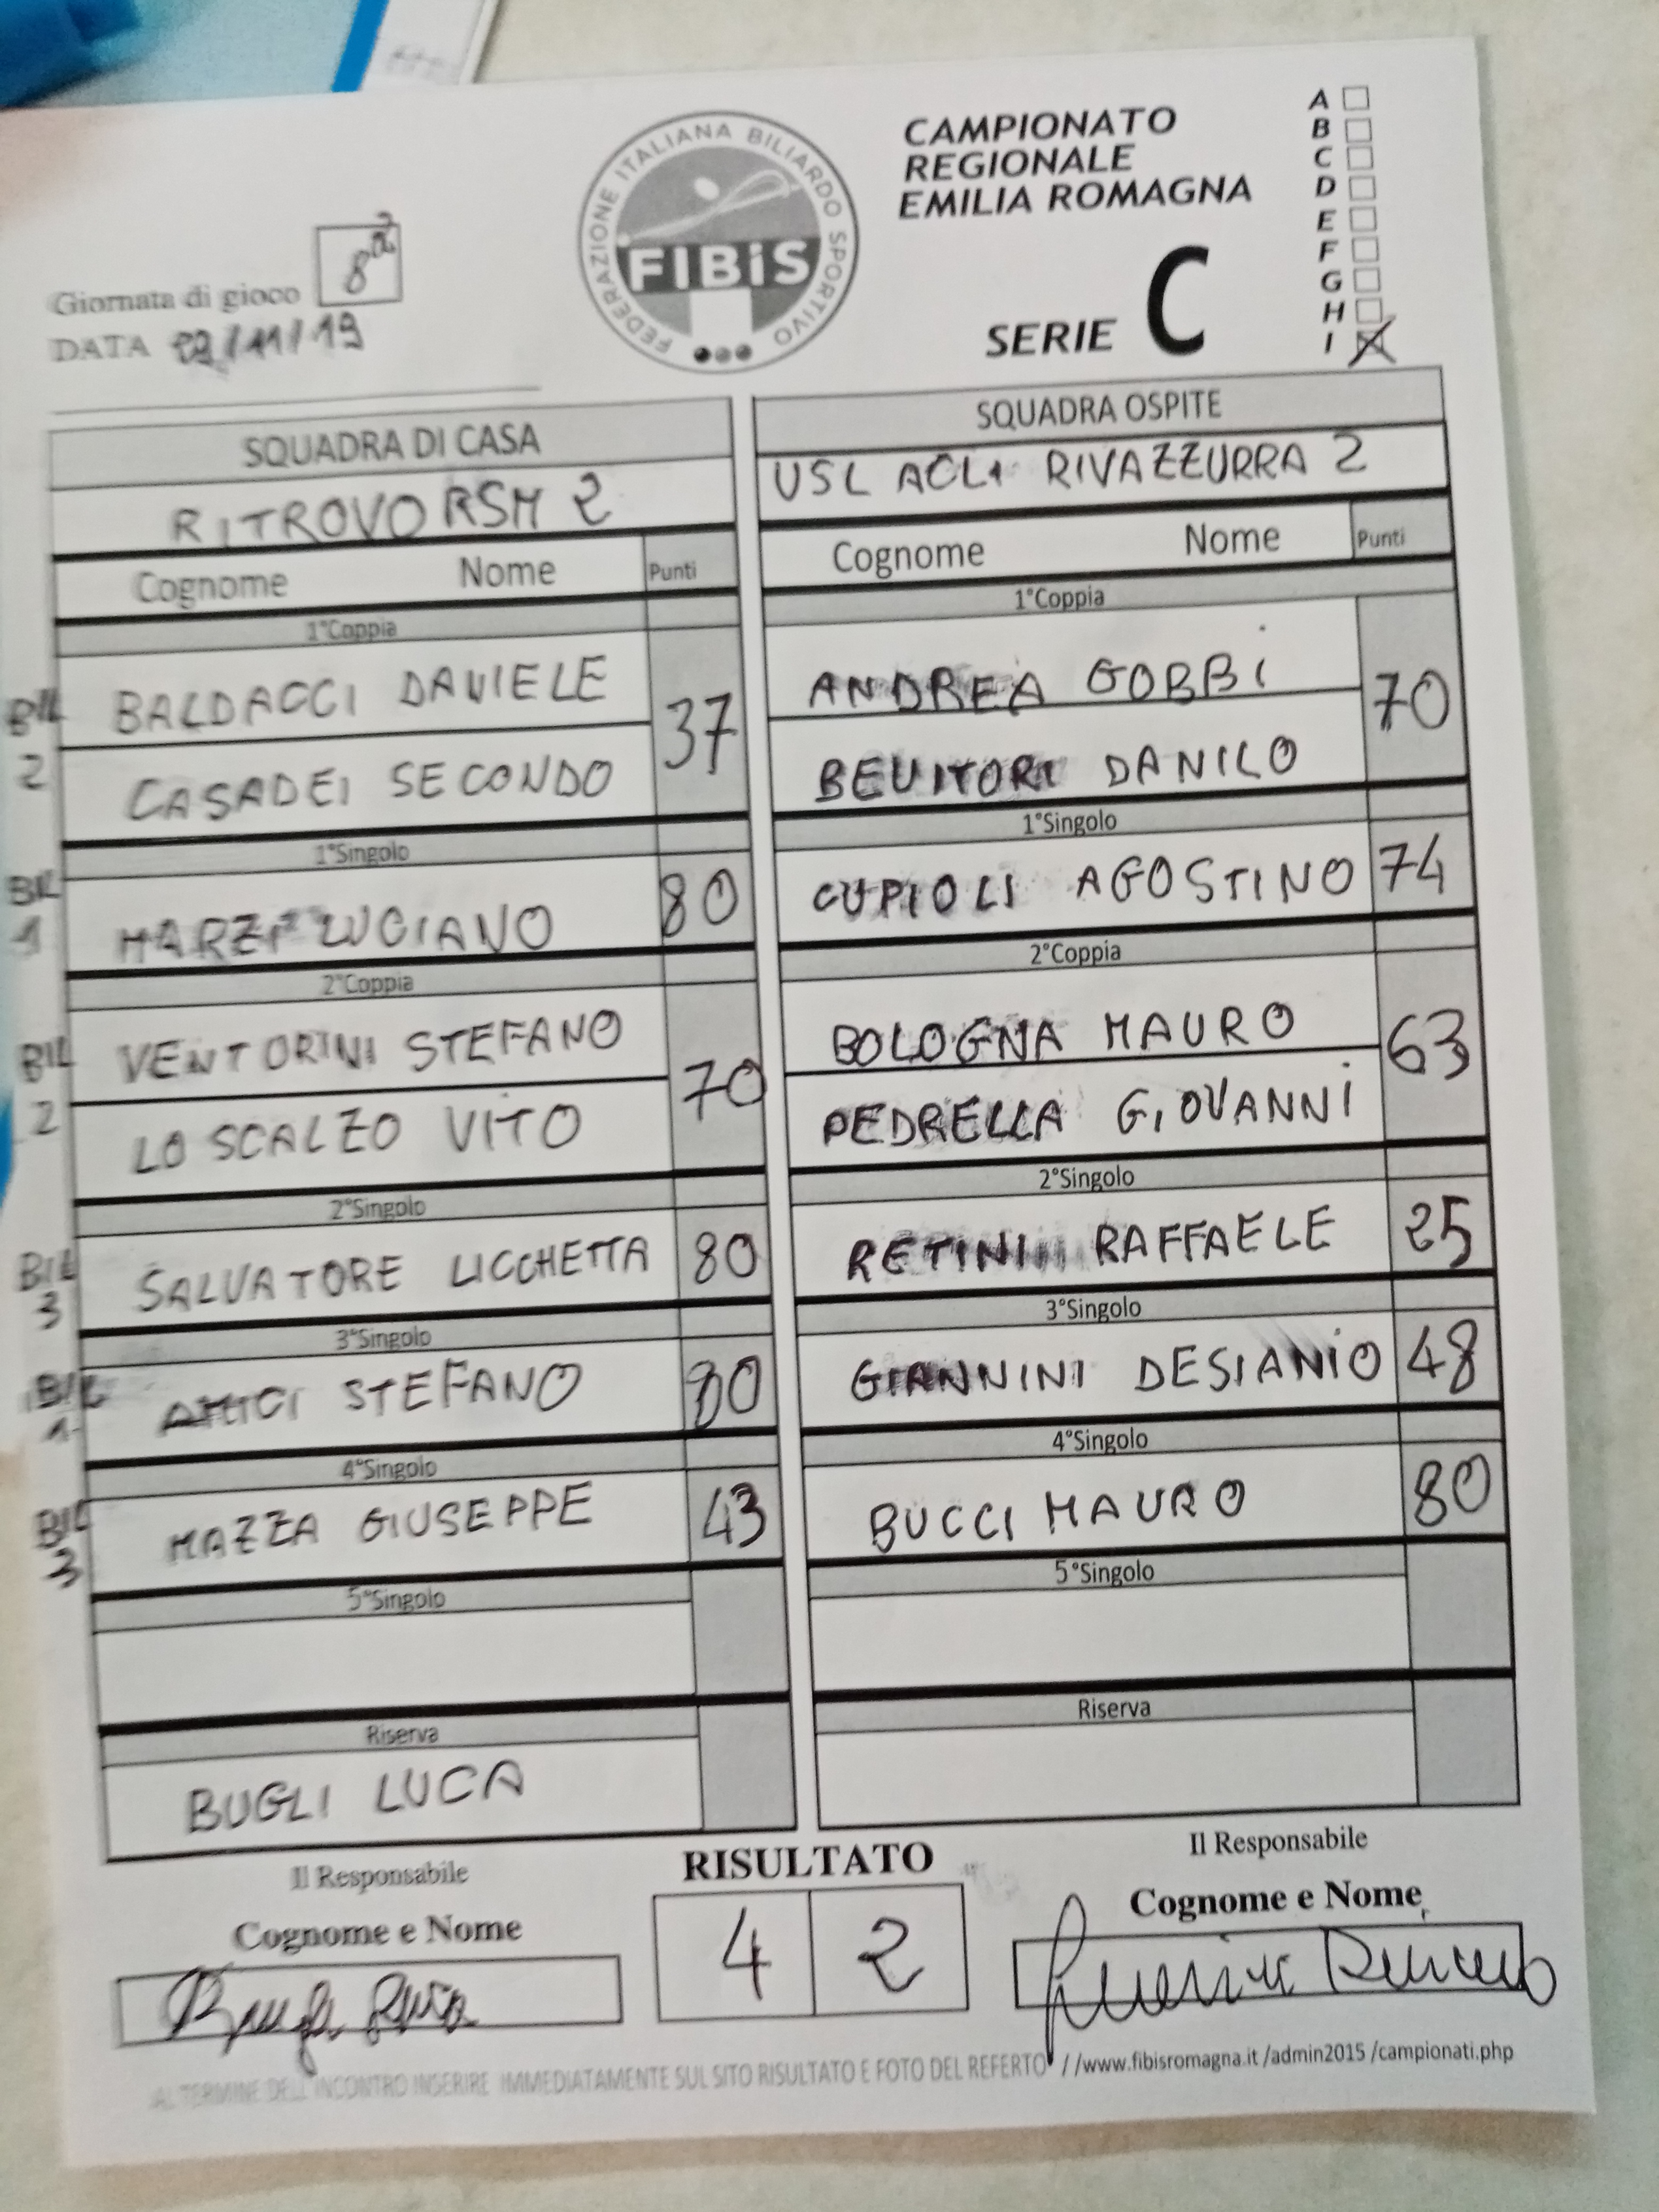 FEDERAZIONE ITALIANA BILIARDO SPORTIVO
FIBiS
CAMPIONATO
REGIONALE
EMILIA ROMAGNA
SERIE C
A
B
C
D
E
F
G
H
I
Giornata di gioco 8ª
DATA /11/19
SQUADRA DI CASA
RITROVO RSM 2
Cognome Nome Punti
1°Coppia
BIL 2
BALDACCI DANIELE
CASADEI SECONDO
37
1°Singolo
BIL 1
MARZI LUCIANO 80
2°Coppia
BIL 2
VENTORINI STEFANO
LO SCALZO VITO
70
2°Singolo
BIL 3
SALVATORE LICCHETTA 80
3°Singolo
BIL 1
AMICI STEFANO 80
4°Singolo
BIL 3
MAZZA GIUSEPPE 43
5°Singolo
Riserva
BUGLI LUCA
SQUADRA OSPITE
USL ACLI RIVAZZURRA 2
Cognome Nome Punti
1°Coppia
ANDREA GOBBI
BEVITORI DANILO
70
1°Singolo
CUPIOLI AGOSTINO 74
2°Coppia
BOLOGNA MAURO
PEDRELLA GIOVANNI
63
2°Singolo
RETINI RAFFAELE 25
3°Singolo
GIANNINI DESIANIO 48
4°Singolo
BUCCI MAURO 80
5°Singolo
Riserva
Il Responsabile
Cognome e Nome
RISULTATO
4 2
Il Responsabile
Cognome e Nome
AL TERMINE DELL'INCONTRO INSERIRE IMMEDIATAMENTE SUL SITO RISULTATO E FOTO DEL REFERTO //www.fibisromagna.it /admin2015 /campionati.php